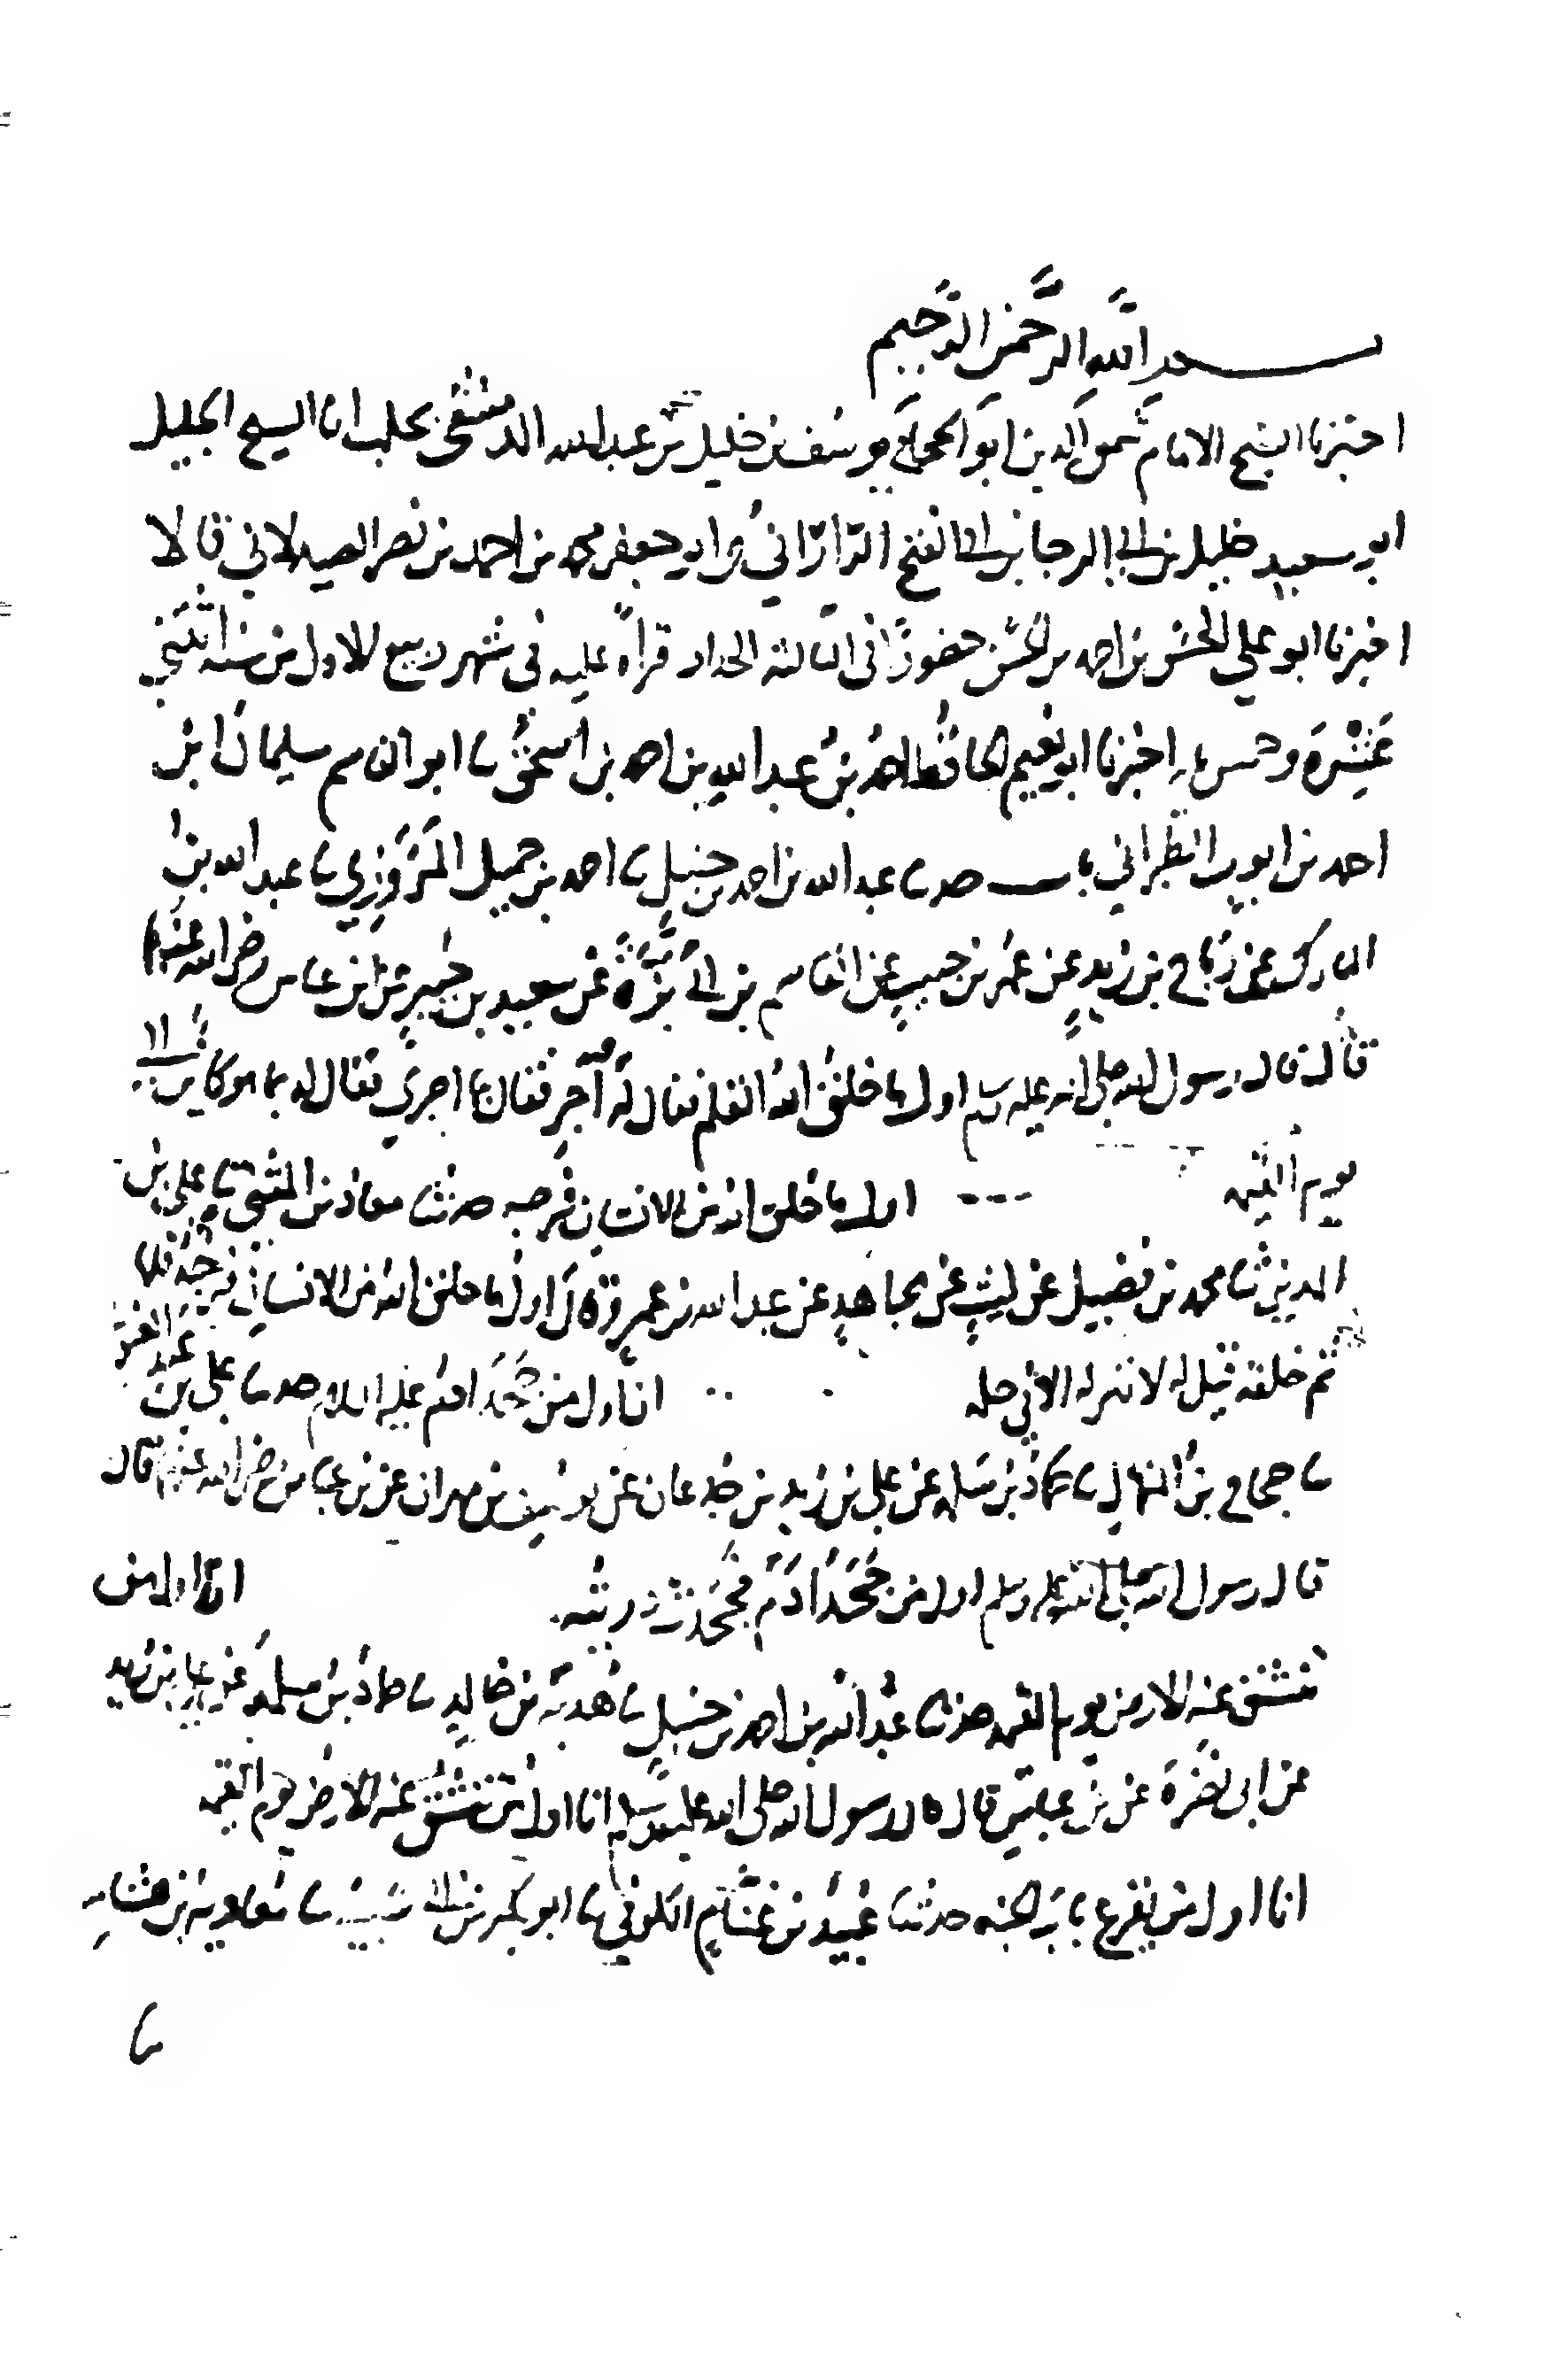 بسم الله الرحمن الرحيم
اخبرنا الشيخ الامام شمس الدين ابو الحجاج يوسف بن خليل بن عبد الله الدمشقي بحلب انا الشيخ الجليل
ابو سعيد خليل بن ابي الرجا بن ابي الفتح الرّارَاني وابو جعفر محمد بن احمد بن نصر الصيدلاني قالا
اخبرنا ابو علي الحسَن بن احمد بن الحسَن حضورًا في الثالثة الحداد قراءة عليه في شهر ربيع الاول من سنة اثنتي
عَشْرَة وخمس مايه اخبرنا ابو نعيم الحافظ احمدُ بنُ عبد اللهِ بن احمد بن اسحقَ ثنا ابو القاسم سليمانُ ابن
احمد بن ايوب الطبراني باب حدثنا عبد الله بن احمد بن حنبلٍ ثنا احمد بن جميل المَرْوَزِي ثنا عبد الله بن
المبارك عن رَبَاح بن زيدٍ عن عُمَر بن حبيبٍ عن القاسم بن ابي بَزَّةَ عن سعيد بن جُبيرٍ عن ابن عباس رضي الله عنهما
قال قال رسول الله صلى الله عليه وسلم اول ما خلقَ اللهُ القلم فقال لَهُ اَجْرِ فقال بما اجري فقال له بما هو كاين الى
يوم القيمه اول ما خلق الله من الانسان فرجه حدثنا معاذ بن المثنى ثنا علي بن
المديني ثنا محمد بن فضيل عن ليثٍ عن مجاهدٍ عن عبد الله بن عمرو قال اولُ ما خلق الله من الانسان فرجُهُ فلما
تم خلقه قيل له لا تنزله الا في حله اول من جَحَدَ ادم عليه السلام حدثنا علي بنُ عبد العزيز
ثنا حجاج بنُ المنهالِ ثنا حمادُ بنُ سَلمه عن علي بن زيد بن جُدعان عن يوسف بن مهران عن بن عباس رضي الله عنهما قال
قال رسول الله صلى الله عليه وسلم اول من جَحَدَ ادَمُ فجَحَدت ذريتُه انا اول من
تنشق عنه الارض يوم القيمه حدثنا عبدُ الله بن احمد بن حنبلٍ ثنا هُدبَة بن خالدٍ ثنا حمادُ بنُ سلمة عن علي بن زيد
عن ابي نضرَة عن بن عباسٍ قال قال رسول الله صلى الله عليه وسلم انا اول من تنشقُ عنه الارض يوم القيمه
انا اول من يقرع بابَ الجنه حدثنا عُبيدُ بن غنَّامٍ الكوفي ثنا ابو بكر بن ابي شيبة ثنا معاوية بن هشام